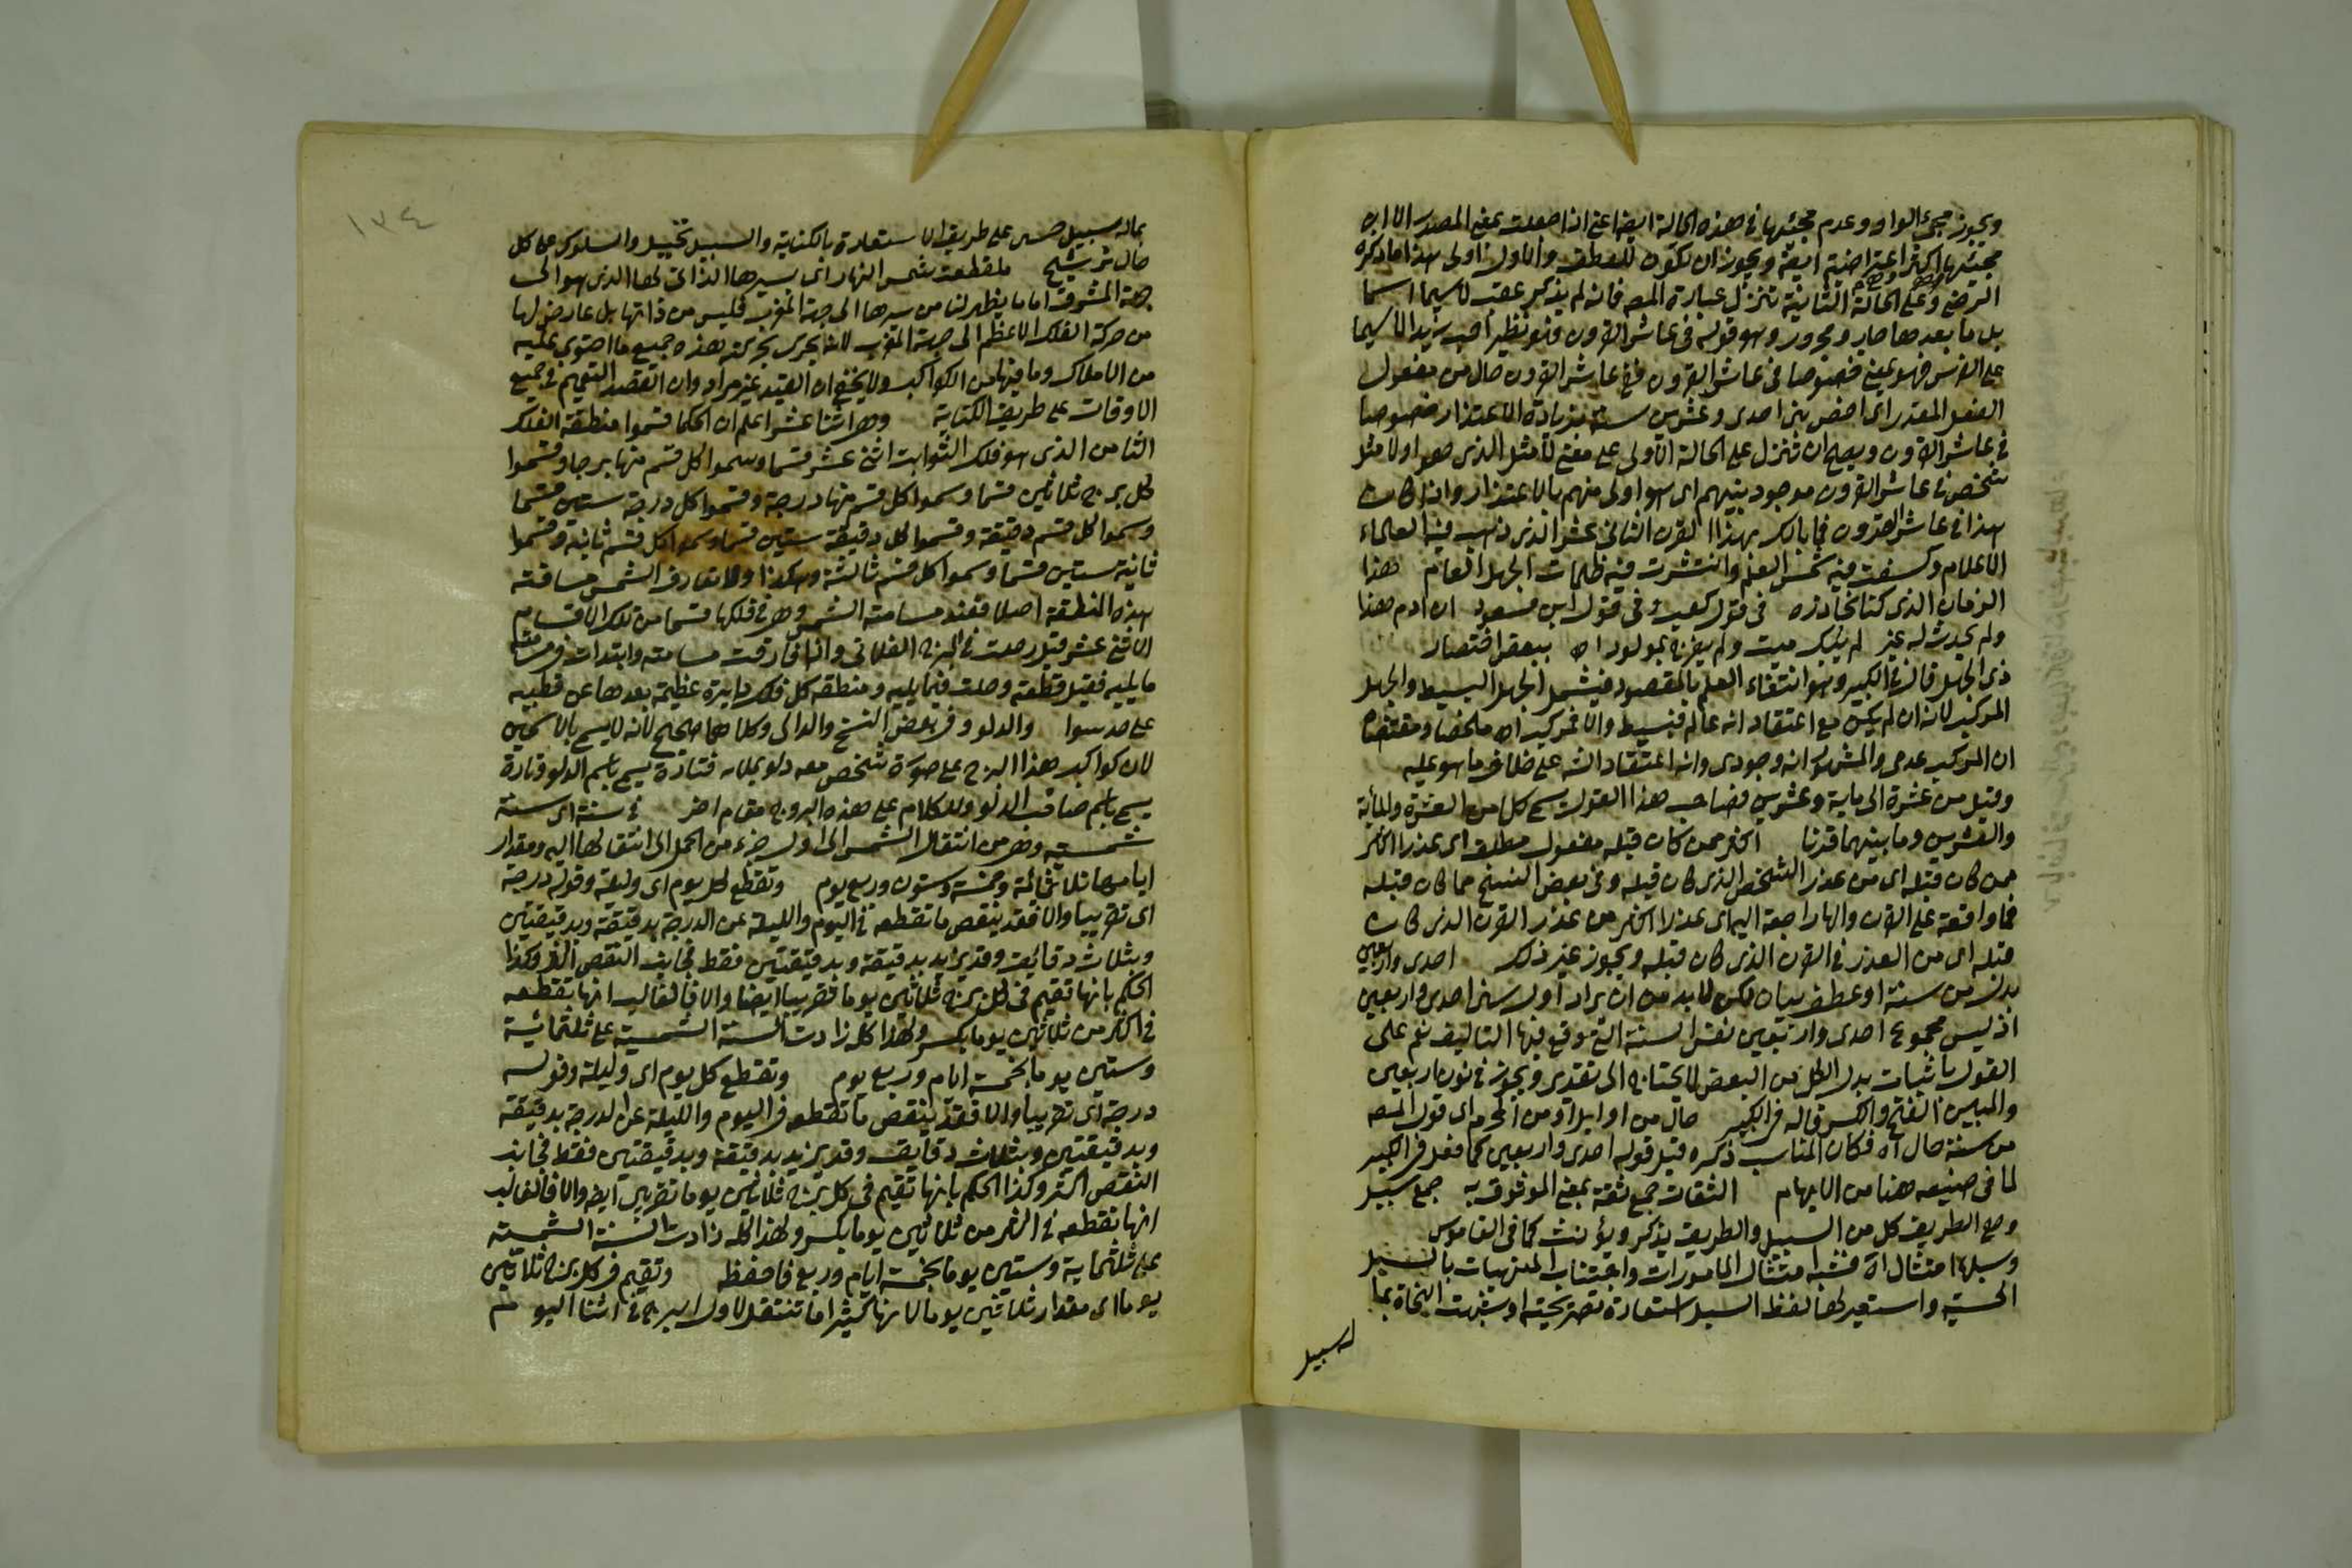 ويجوز مجئ الواو وعدم مجئها في هذه الحالة ايضا اعني اذا جعلت بمعنى المصدر الا ان
مجيئها اكثر اعتراضية ويجوز ان تكون للعطف والاول اولى هذا ما ذكره
الرضي وعلى الحالة الثانية تنزل عبارة المصـ فانه لم يذكر عقب لاسيما اسما
بل ما بعدها جار ومجرور وهو قوله في عاشر القرون فهو نظير احب زيدا لاسيما
على الفرس فهو بمعنى خصوصا في عاشر القرون ففي عاشر القرون حال من مفعول
الفعل المقدر اى اخص بني احدى وعشرين سنة بزيادة الاعتذار خصوصا
في عاشر القرون ويصح ان تنزل على الحالة الاولى على معنى لا مثل الذي هو اولا مثل
شخص في عاشر القرون موجود بينهم اى هو اولى منهم بالاعتذار واذا كان
هذا في عاشر القرون فما بالك بهذا القرن الثاني عشر الذي ذهب فيه العلماء
الاعلام وكسفت فيه شمس العلم وانتشرت فيه ظلمات الجهل العام هذا
الزمان الذي كنا نحاذره في قول كعب وفي قول ابن مسعود ان دام هذا
ولم يحدث له غير لم يبك ميت ولم يفرح بمولود اه ببعض اختصار
ذى الجهل قال في الكبير وهو انتفاء العلم بالمقصود فيشمل الجهل البسيط والجهل
المركب لانه ان لم يكن مع اعتقاد انه عالم فبسيط والا فمركب اه ملخصا ومقتضاه
ان المركب عدمى والمشهور انه وجودى وانه اعتقاد الشئ على خلاف ما هو عليه
وقيل من عشرة الى ماية وعشرين فصاحب هذا القول يسمى كل من العشرة والمأية
والعشرين وما بينهما قرنا اكثر ممن كان قبله مفعول مطلق اى عذرا اكثر
ممن كان قبله اى من عذر الشخص الذى كان قبله وفي بعض النسخ مما كان قبله
فما واقعة على القرن والها راجعة اليه اى عذرا اكثر من عذر القرن الذى كان
قبله اى من العذر في القرن الذى كان قبله ويجوز غير ذلك احدى واربعين
بدل من سنة او عطف بيان لكن لا بد من ان يراد اول سنى احدى واربعين
اذ ليس مجموع احدى واربعين نفس السنة التى وقع فيها التاليف نعم على
القول باثبات بدل الكل من البعض لا يحتاج الى تقدير ويجوز في نون اربعين
والمبين الفتح والكسر قاله في الكبير حال من اوايل او من المحرم اى قول المصـ
من سنة حال اه فكان المناسب ذكره قبل قوله احدى واربعين كما فعل في الكبير
لما في صنيعه هنا من الايهام الثقات جمع ثقة بمعنى الموثوق به جمع سبيل
وهى الطريق كل من السبيل والطريق يذكر ويؤنث كما في القاموس
وسبلها امتثال اه فشبه امتثال المامورات واجتناب المنهيات بالسبيل
الحسية واستعير لها لفظ السبل استعارة تصريحية او شبهت النجاة بما
له سبيل
١٣٤
بماله سبيل حسى على طريق الاستعارة بالكناية والسبيل تخييل والسلوك على كل
حال ترشيح ما قطعت شمس النهار اى سيرها الذاتى لها الذى هو الى
جهة المشرق اما ما يظهر لنا من سيرها الى جهة المغرب فليس من ذاتها بل عارض لها
من حركة الفلك الاعظم الى جهة المغرب لانه يجرى بحركته هذه جميع ما احتوى عليه
من الافلاك وما فيها من الكواكب ولا يخفى ان القيد غير مراد وان القصد التعميم في جميع
الاوقات على طريق الكناية وهى اثنا عشر اعلم ان الحكما قسموا منطقة الفلك
الثامن الذى هو فلك الثوابت اثنى عشر قسما وسموا كل قسم منها برجا وقسموا
كل برج ثلاثين قسما وسموا كل قسم منها درجة وقسموا كل درجة ستين قسما
وسموا كل قسم دقيقة وقسموا كل دقيقة ستين قسما وسموا كل قسم ثانية وقسموا
ثانية ستين قسما وسموا كل قسم ثالثة وهكذا ولا تفارق الشمس مسامتة
هذه المنطقة اصلا فعند مسامتة الشمس وهى في فلكها قسما من تلك الاقسام
الاثنى عشر قيل حلت في البرج الفلانى واذا فارقت مسامتته وابتدات في مسامتة
ما يليه فقيل قطعته وحلت فيما يليه ومنطقة كل فلك دايرة عظيمة بعدها عن قطبيه
على حد سوا والدلو وفي بعض النسخ والدالى وكلاهما صحيح لانه لا يسمى بالاسمين
لان كواكب هذا البرج على صورة شخص معه دلو يملاه فتارة يسمى باسم الدلو وتارة
يسمى باسم صاحب الدلو وللكلام على هذه البروج مقام اخر في سنة اى سنة
شمسية وهى من انتقال الشمس الى اول جزء من الحمل الى انتقالها اليه ومقدار
ايامها ثلاثمائة وخمسة وستون وربع يوم وتقطع كل يوم اى وليلة وقوله درجة
اى تقريبا والا فقد ينقص ما تقطعه في اليوم والليلة عن الدرجة بدقيقة وبدقيقتين
وبثلاث دقائق وقد يزيد بدقيقة وبدقيقتين فقط فجانب النقص اكثر وكذا
الحكم بانها تقيم في كل برج ثلاثين يوما تقريبا ايضا والا فالغالب انها تقطعه
في اكثر من ثلاثين يوما بكسر ولهذا كله زادت السنة الشمسية على ثلثمائية
وستين يوما بخمسة ايام وربع يوم وتقطع كل يوم اى وليلة وقوله
درجة اى تقريبا والا فقد ينقص ما تقطعه في اليوم والليلة عن الدرجة بدقيقة
وبدقيقتين وبثلاث دقايق وقد يزيد بدقيقة وبدقيقتين فقط فجانب
النقص اكثر وكذا الحكم بانها تقيم في كل برج ثلاثين يوما تقريبا ايضا والا فالغالب
انها تقطعه في اكثر من ثلاثين يوما بكسر ولهذا كله زادت السنة الشمسية
على ثلثماية وستين يوما بخمسة ايام وربع فاحفظه وتقيم في كل برج ثلاثين
يوما اى مقدار ثلاثين يوما لانها كثيرا ما تنتقل لاول البرج في اثنا اليوم